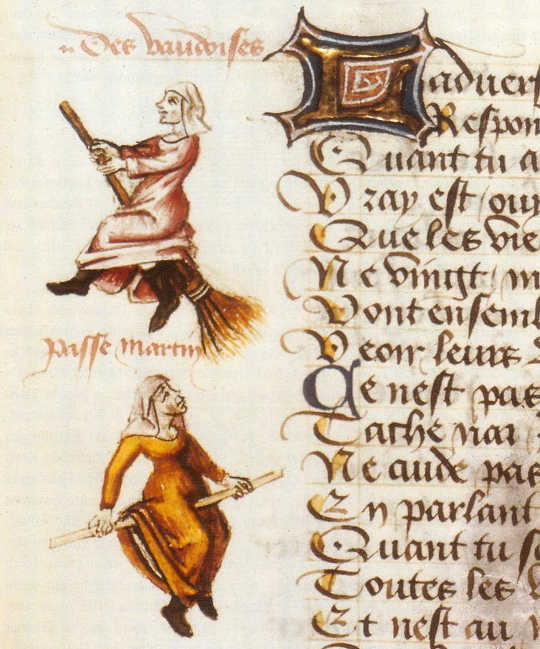 Des vaudoises
passe martin
Ladvers
Respon
Quant tu a
Vray est / ouy
Que les vie
Ne vingt / m
Vont ensemb
Veoir leurs
Ce nest pas
Ne cuide pas
En parlant
Quant tu so
Toutes les
Et nest au